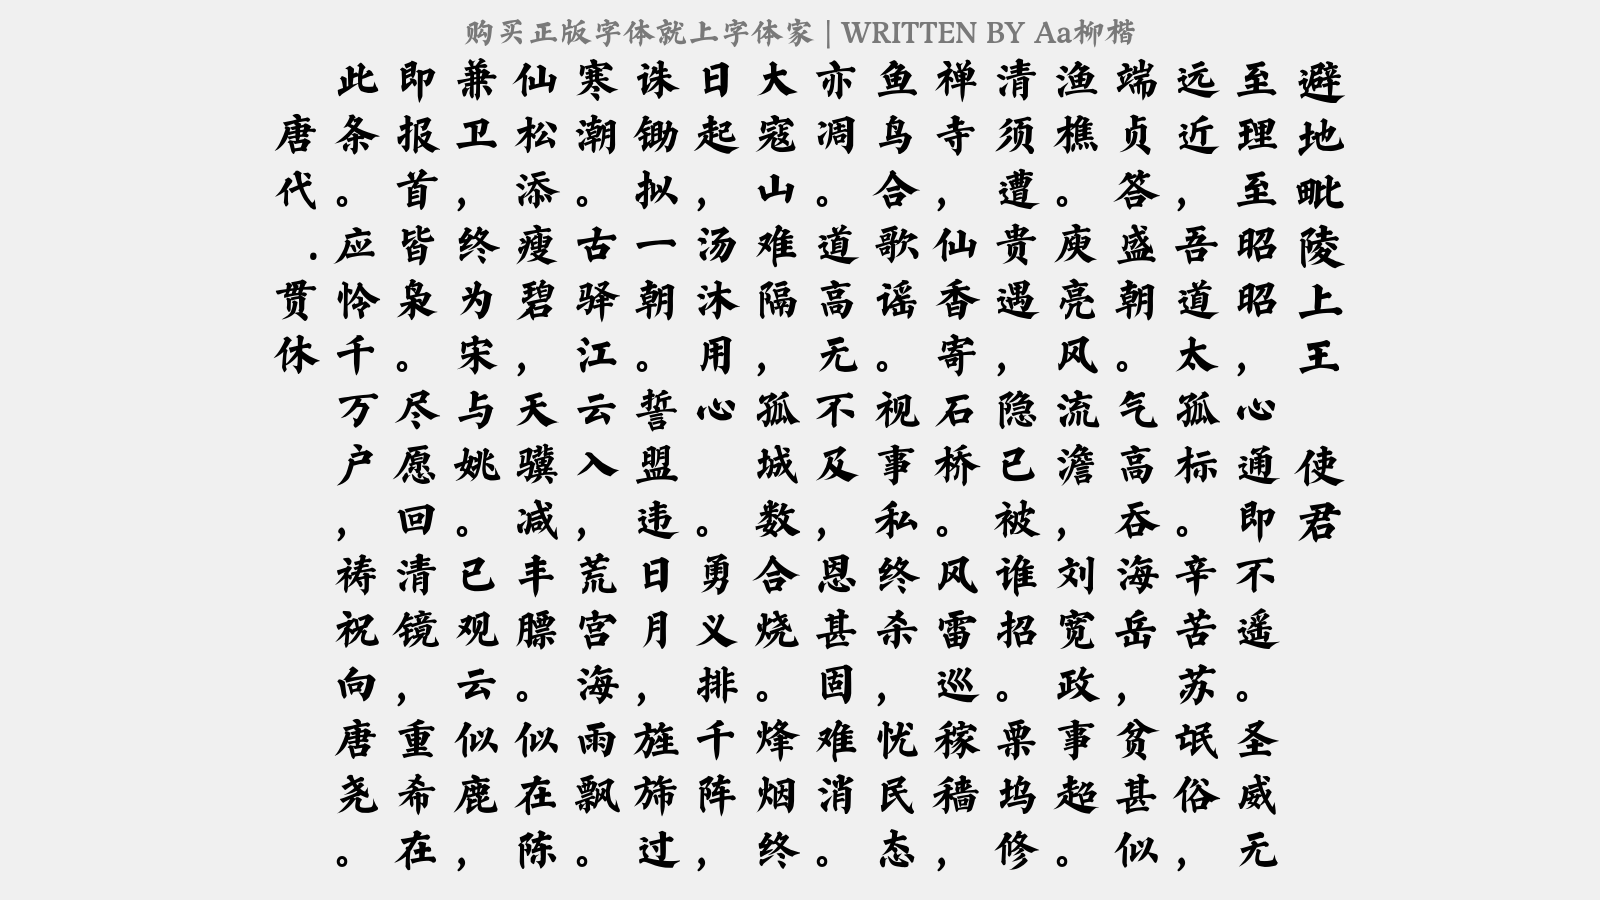 购买正版字体就上字体家 | WRITTEN BY Aa柳楷
避地毗陵上王 使君
至理至昭昭，心通即不遥。圣威无
远近，吾道太孤标。辛苦苏氓俗，
端贞答盛朝。气高吞海岳，贫甚似
渔樵。庾亮风流澹，刘宽政事超。
清须遭贵遇，隐已被谁招。栗坞修
禅寺，仙香寄石桥。风雷巡稼穑，
鱼鸟合歌谣。视事私终杀，忧民态
亦凋。道高无不及，恩甚固难消。
大寇山难隔，孤城数合烧。烽烟终
日起，汤沐用心 。勇义排千阵，
诛锄拟一朝。誓盟违日月，旌旆过
寒潮。古驿江云入，荒宫海雨飘。
仙松添瘦碧，天骥减丰膘。似在陈
兼卫，终为宋与姚。已观云似鹿，
即报首皆枭。尽愿回清镜，重希在
此条。应怜千万户，祷祝向唐尧。
唐代.贯休